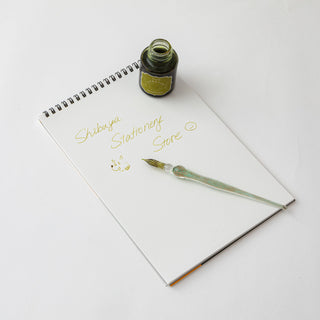 Shibuya
Stationery
Store